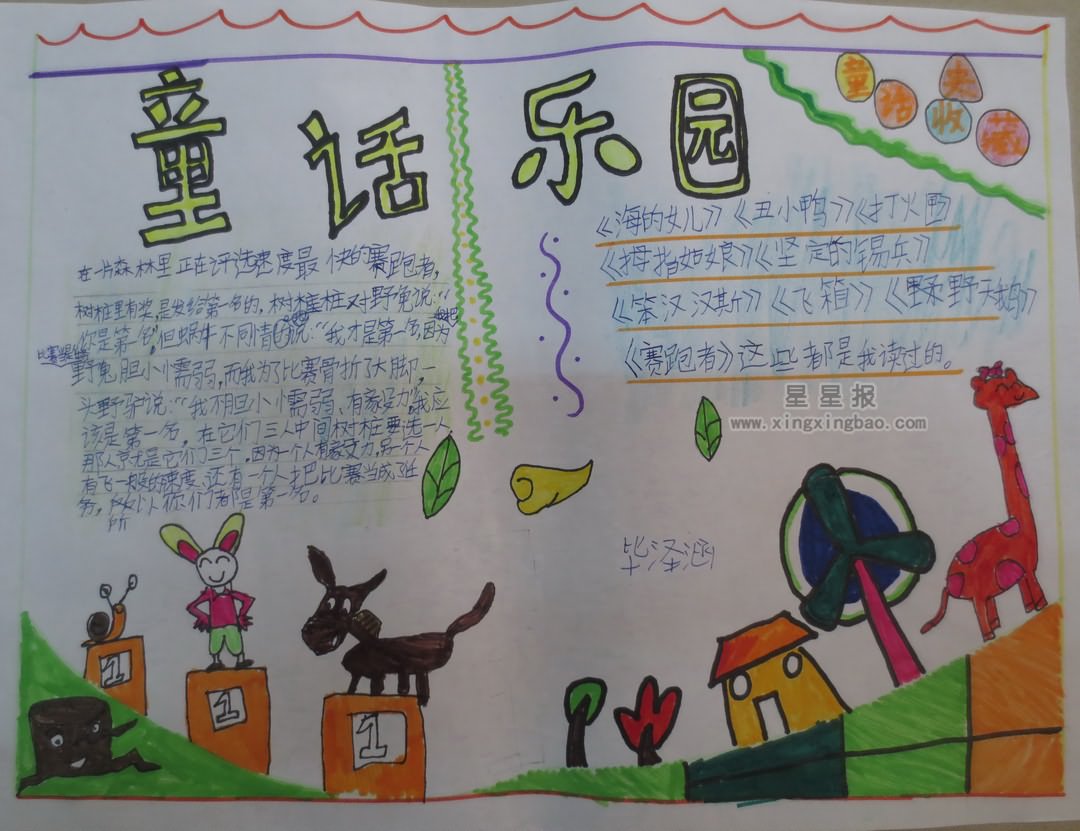 童话乐园
童话
夹收藏
在一片森林里正在评选速度最快的赛跑者,
树桩里有奖,是发给第一名的,树桩对野兔说:“
你是第一名”但蜗牛不同情的说:“我才是第一名,因为
比赛
野兔胆小懦弱,而我为了比赛骨折了大脚,一
头野驴说:“我不胆小懦弱、有毅力”我应
该是第一名,在它们三人中间树桩要选一人
那人就是它们三个,因为一个人有毅力,另一个人
有飞一般的速度、还有一个人才把比赛当成了任
务,所以你们都是第一名。
《海的女儿》《丑小鸭》《打火匣
《拇指姑娘》《坚定的锡兵》
《笨汉汉斯》《飞箱》《野天鹅》
《赛跑者》这些都是我读过的。
星星报
www.xingxingbao.com
毕泽涵
1
1
1